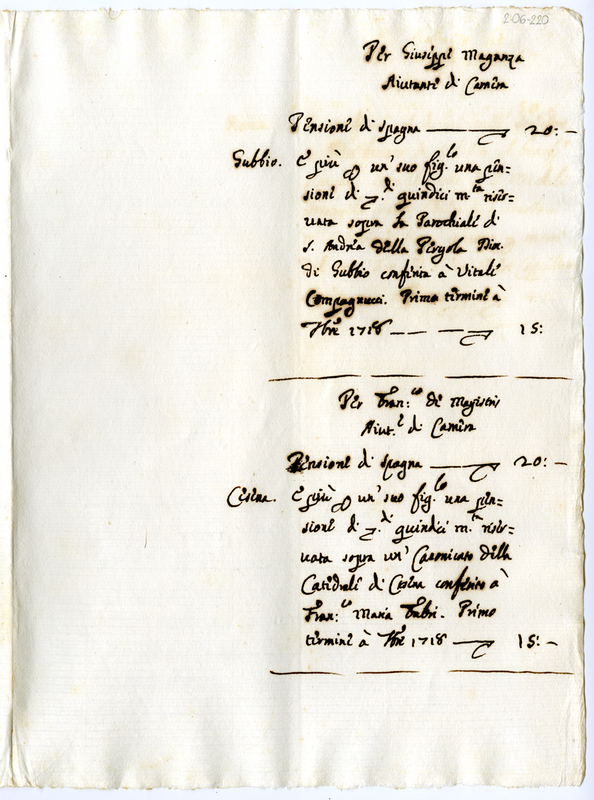 2-06-220
Per Giuseppe Maganza
Aiutante di Camera
Pensione di Spagna 20: –
Gubbio. E più p un' suo fig.lo una pen=
sione di di quindici m.ta riser=
uata sopra la Parochiale di
S. Andrea della Pergola Dioc.
di Gubbio conferita à Vitale
Compagnucci. Primo termine à
1718 15:
Per Fran.co de Magistris
Aiut.e di Camera
Pensione di Spagna 20: –
Cesena. E più p un' suo fig.lo una pen=
sione di di quindici m.ta riser=
uata sopra un' Canonicato della
Catedrale di Cesena conferito à
Fran.co Maria Fabri. Primo
termine à 1718 15: –